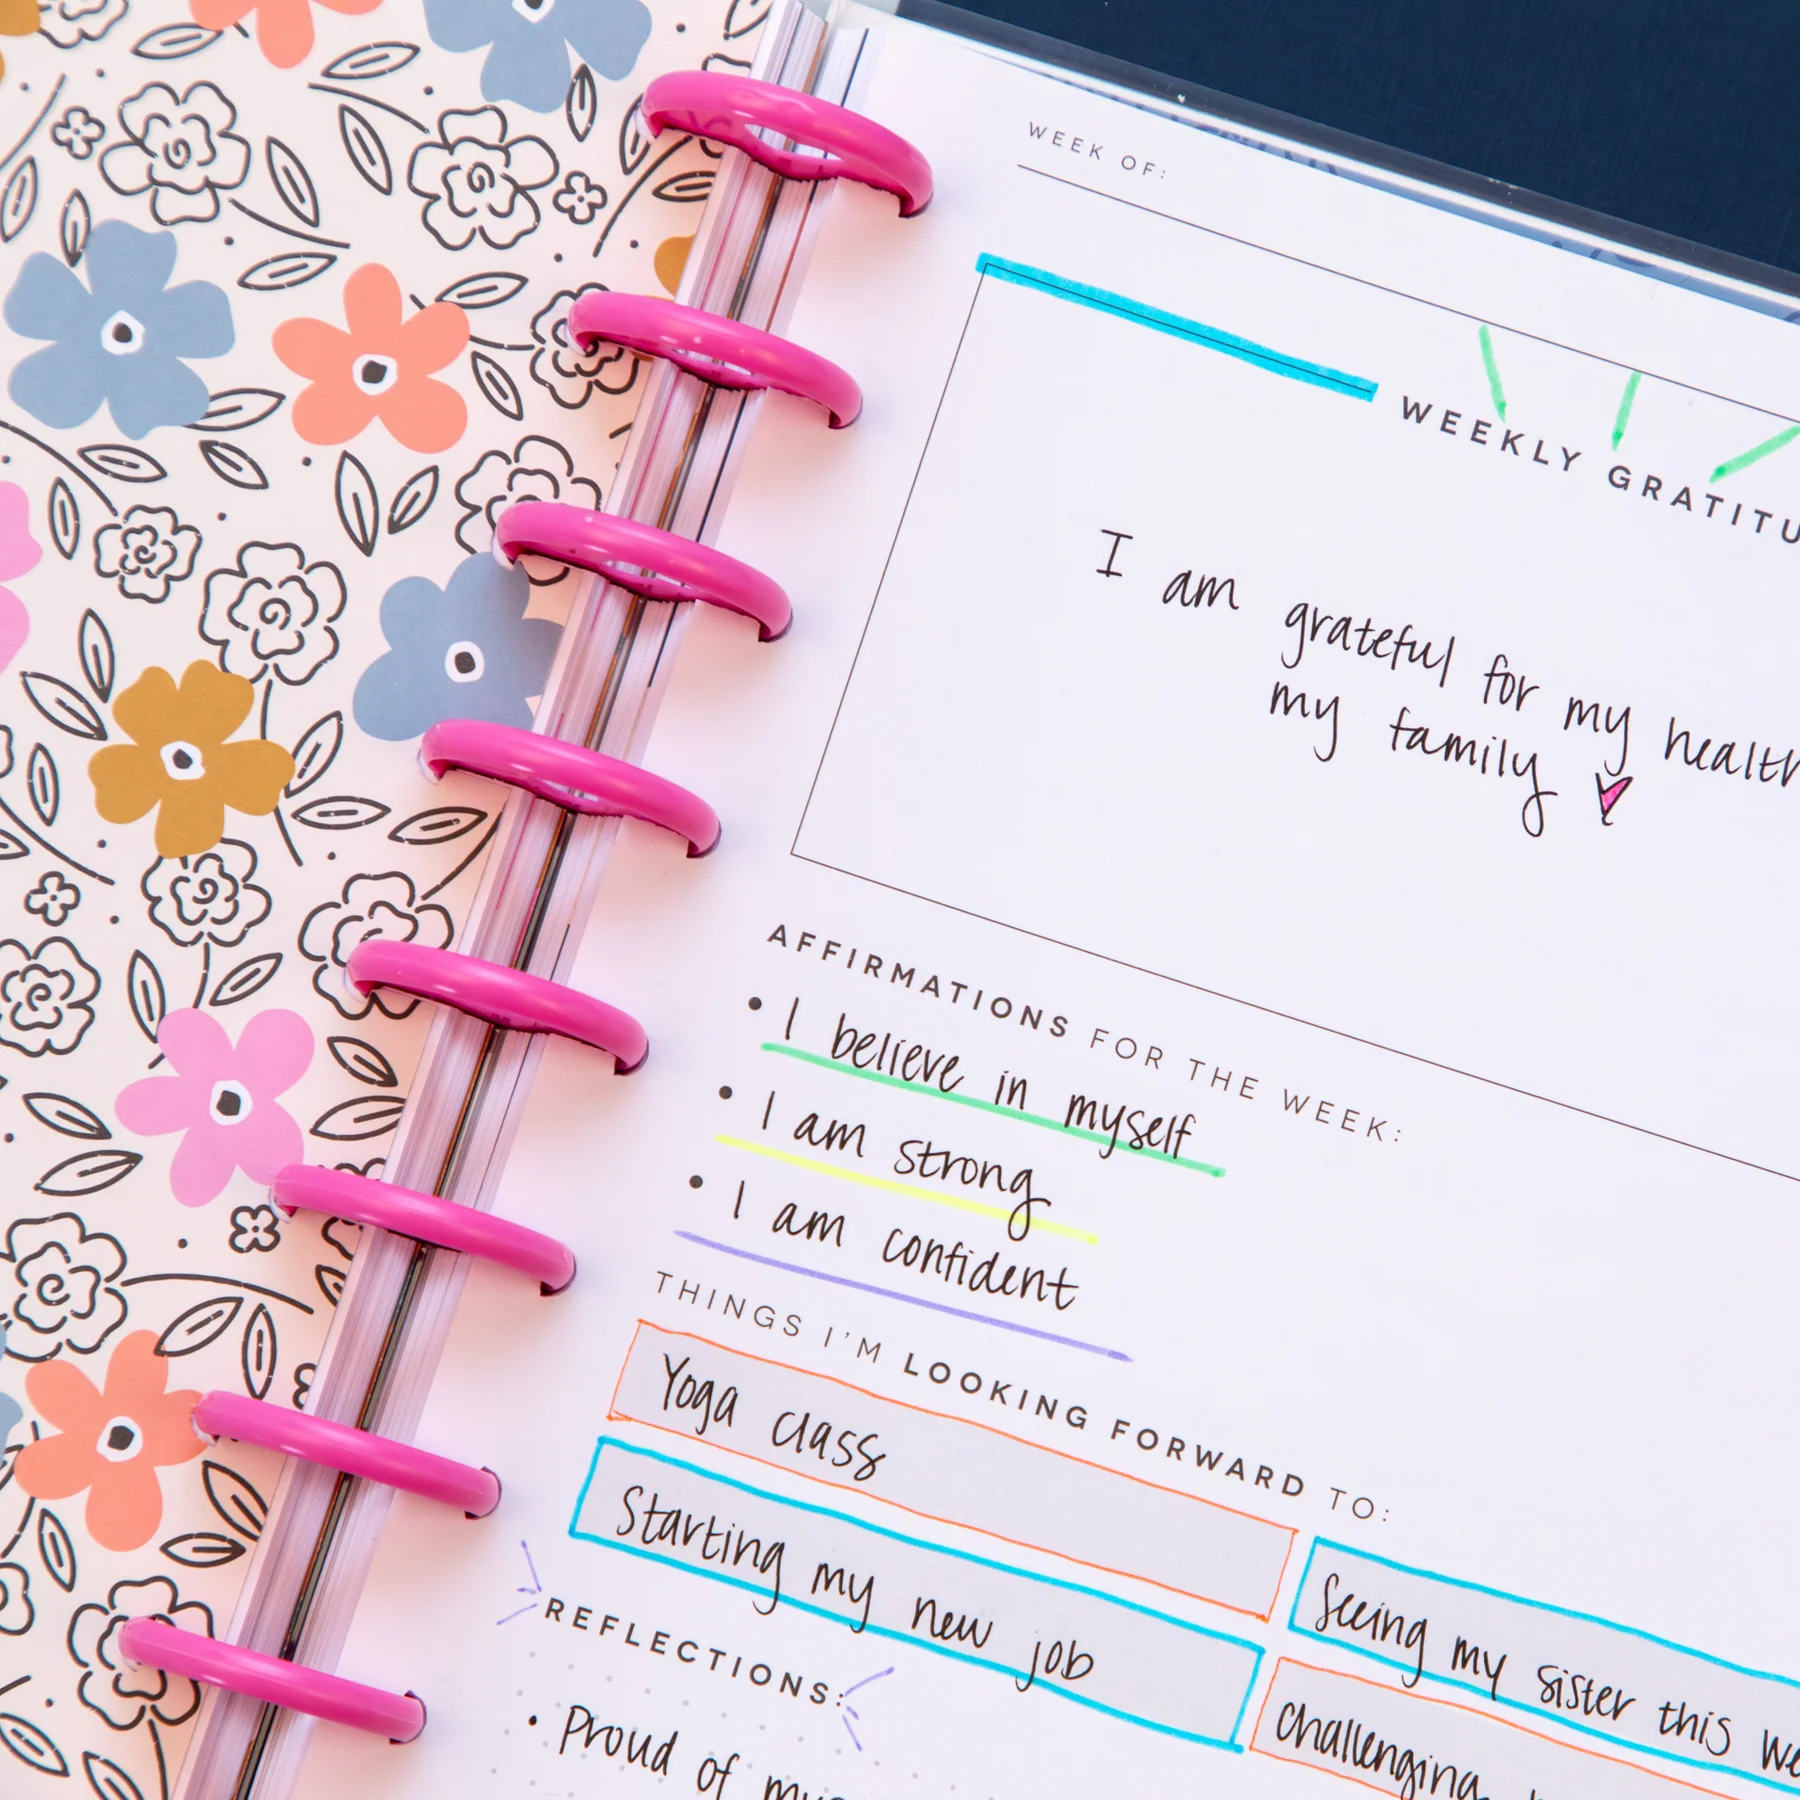 WEEK OF:
WEEKLY
I am grateful for my
my family
AFFIRMATIONS FOR THE WEEK:
• I believe in myself
• I am strong
• I am confident
THINGS I'M LOOKING FORWARD TO:
Yoga class
Starting my new job
Seeing my sister this
Challenging
REFLECTIONS:
• Proud of